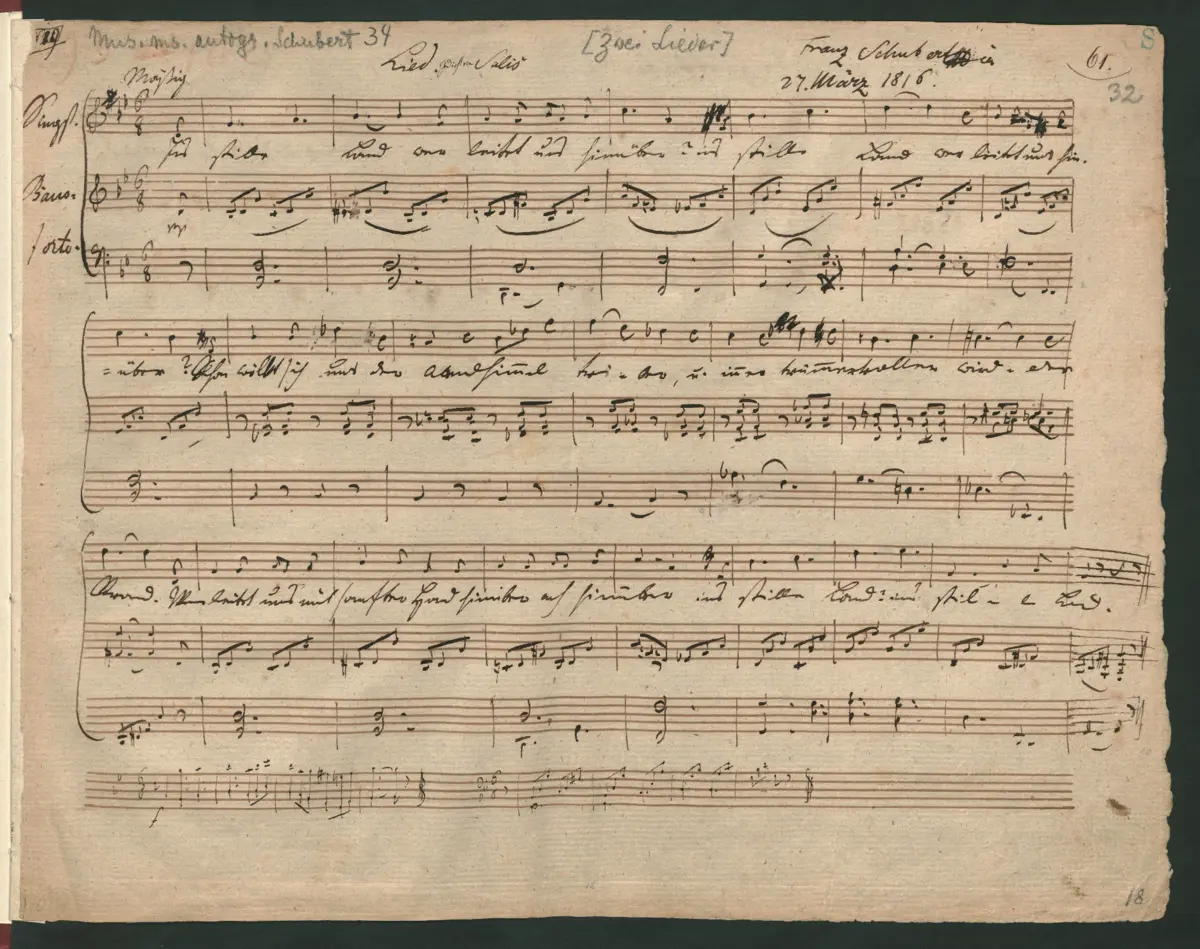 Mus. ms. autogr. Schubert 34
[Zwei Lieder]
Franz Schubert
27. März 1816.
61.
8
32
Lied. Salis
Mäßig
Singst.
Ins stille Land wer leitet uns hinüber? ins stille Land wer leitet uns hin-
Piano-
pp
forte.
=über? Schon wölkt sich uns der Abendhimmel trü-ber, u. immer trümmervoller wird - der
Strand. Wer leitet uns mit sanfter Hand hinüber ach hinüber ins stille Land? ins stil - le Land.
f
18